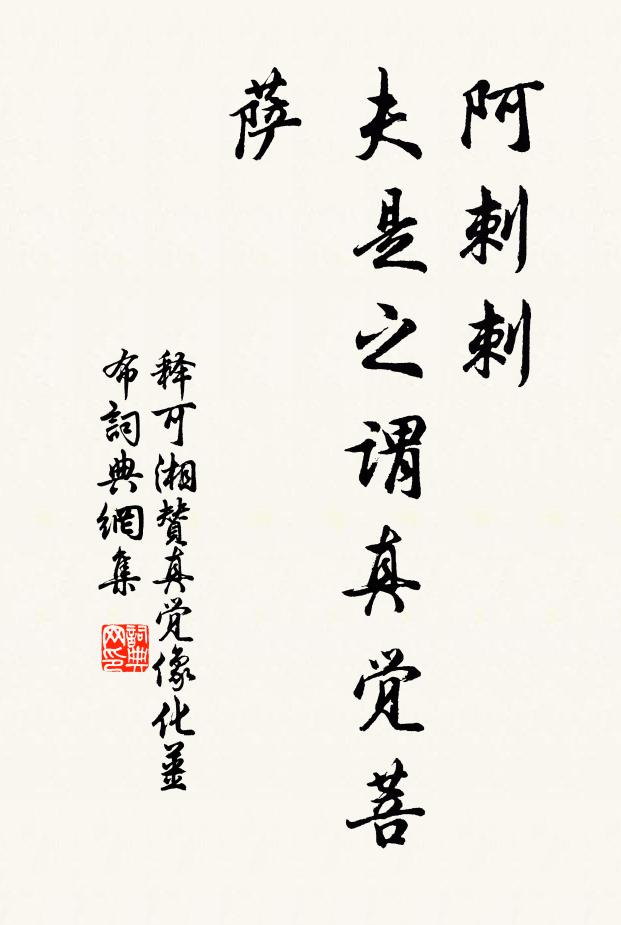 阿剌剌
夫是之谓真觉菩
萨
释可湘賛真觉像化薑
布詞典網集
詞典
网印